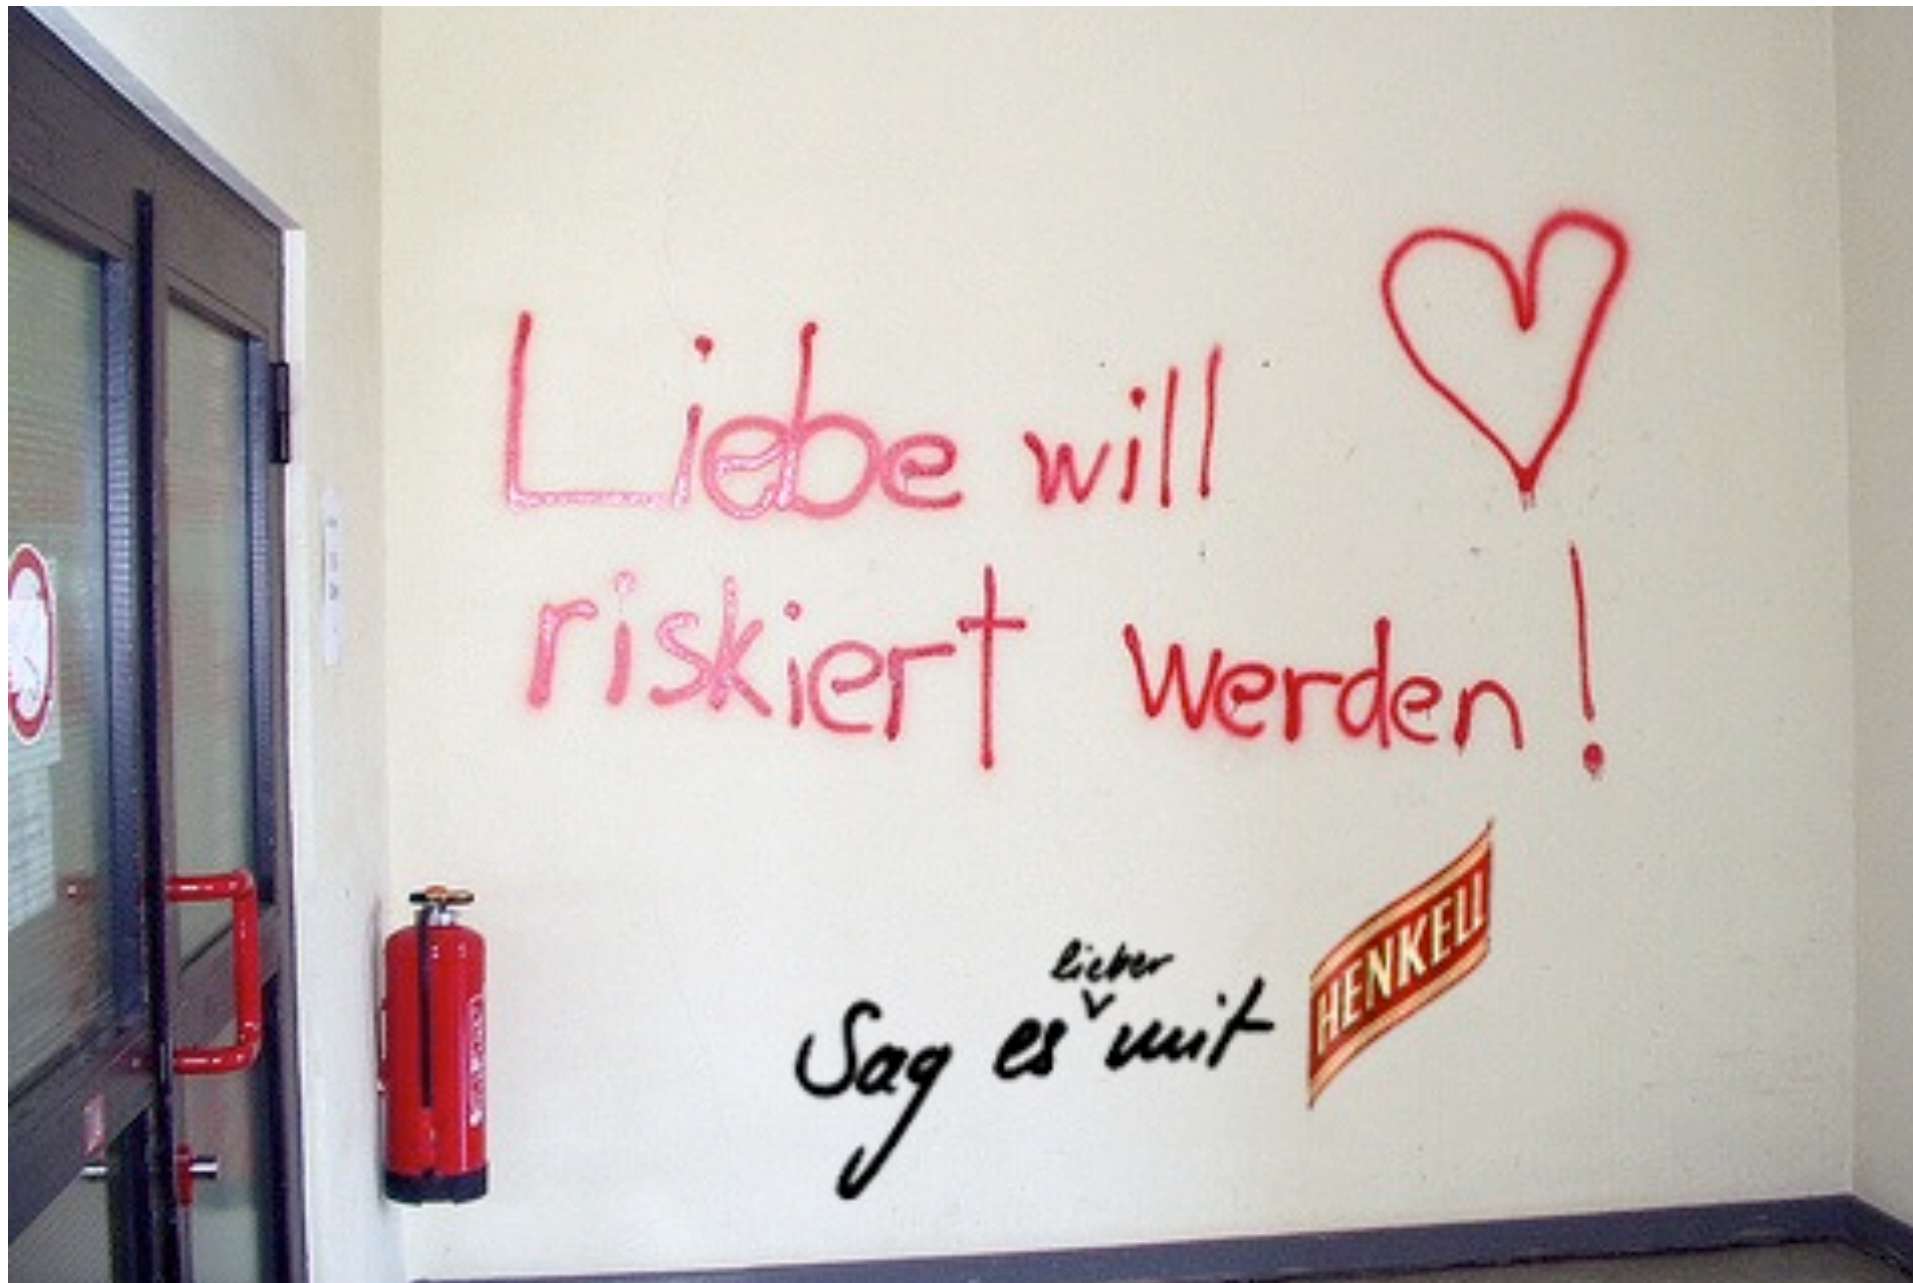 Liebe will
riskiert werden!
Sag es lieber mit HENKELL